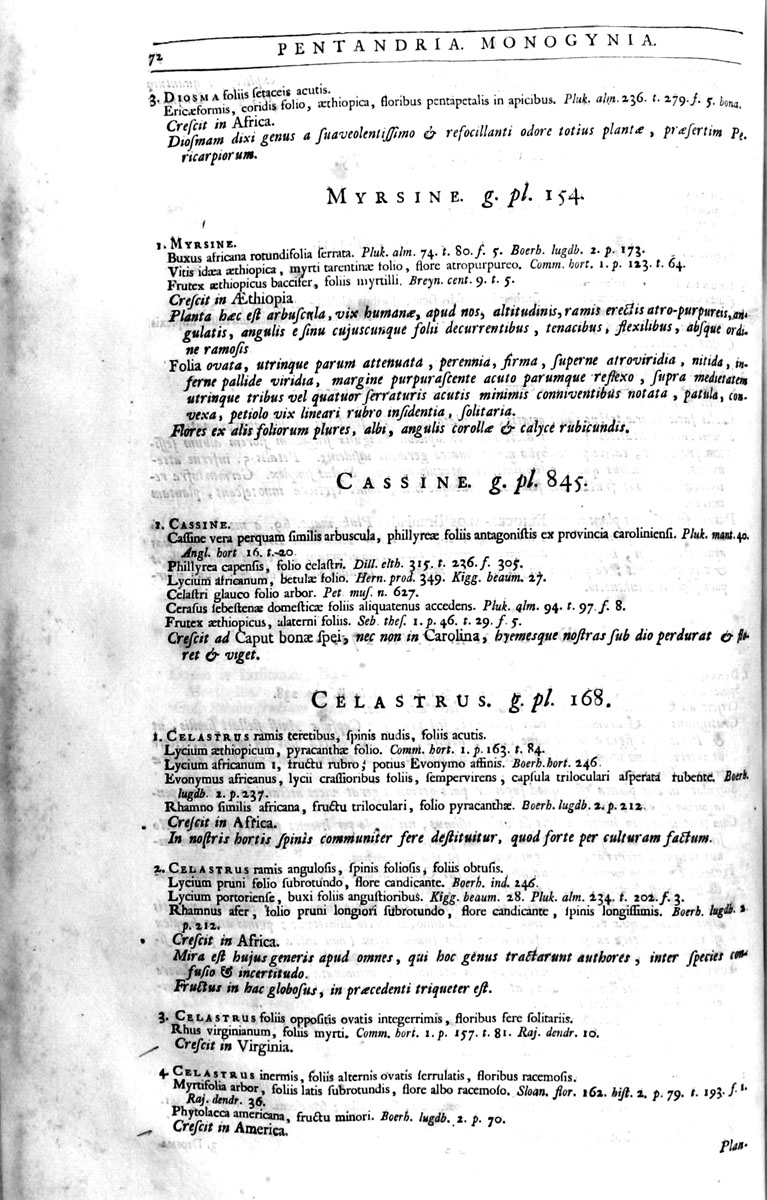 72
PENTANDRIA. MONOGYNIA.
3. DIOSMA foliis ſetaceis acutis.
Ericæformis, coridis folio, æthiopica, floribus pentapetalis in apicibus. Pluk. alm. 236. t. 279. f. 5. bona.
Creſcit in Africa.
Dioſmam dixi genus a ſuaveolentiſſimo & refocillanti odore totius plantæ, præſertim Pe-
ricarpiorum.
MYRSINE. g. pl. 154.
1. MYRSINE.
Buxus africana rotundifolia ſerrata. Pluk. alm. 74. t. 80. f. 5. Boerh. lugdb. 2. p. 173.
Vitis idæa æthiopica, myrti tarentinæ folio, flore atropurpureo. Comm. hort. 1. p. 123. t. 64.
Frutex æthiopicus baccifer, foliis myrtilli. Breyn. cent. 9. t. 5.
Creſcit in Æthiopia
Planta hæc eſt arbuſcula, vix humanæ, apud nos, altitudinis, ramis erectis atro-purpureis, an-
gulatis, angulis e ſinu cujuscunque folii decurrentibus, tenacibus, flexilibus, abſque ordi-
ne ramoſis
Folia ovata, utrinque parum attenuata, perennia, firma, ſuperne atroviridia, nitida, in-
ferne pallide viridia, margine purpuraſcente acuto parumque reflexo, ſupra medietatem
utrinque tribus vel quatuor ſerraturis acutis minimis conniventibus notata, patula, con-
vexa, petiolo vix lineari rubro inſidentia, ſolitaria.
Flores ex alis foliorum plures, albi, angulis corollæ & calyce rubicundis.
CASSINE. g. pl. 845.
1. CASSINE.
Caſſine vera perquam ſimilis arbuscula, phillyreæ foliis antagoniſtis ex provincia carolinienſi. Pluk. mant. 40.
Angl. hort 16. t. 20
Phillyrea capenſis, folio celaſtri. Dill. elth. 315. t. 236. f. 305.
Lycium africanum, betulæ folio. Hern. prod. 349. Kigg. beaum. 27.
Celaſtri glauco folio arbor. Pet muſ. n. 627.
Ceraſus ſebeſtenæ domeſticæ foliis aliquatenus accedens. Pluk. alm. 94. t. 97. f. 8.
Frutex æthiopicus, alaterni foliis. Seb theſ. 1. p. 46. t. 29. f. 5.
Creſcit ad Caput bonæ ſpei, nec non in Carolina, hyemesque noſtras ſub dio perdurat & flo-
ret & viget.
CELASTRUS. g. pl. 168.
1. CELASTRUS ramis teretibus, ſpinis nudis, foliis acutis.
Lycium æthiopicum, pyracanthæ folio. Comm. hort. 1. p. 163. t. 84.
Lycium africanum 1, fructu rubro; potius Evonymo affinis. Boerh. hort. 246
Evonymus africanus, lycii craſſioribus foliis, ſempervirens, capſula triloculari aſperata rubente. Boerh.
lugdb. 2. p. 237.
Rhamno ſimilis africana, fructu triloculari, folio pyracanthæ. Boerh. lugdb. 2. p. 212.
Creſcit in Africa.
In noſtris hortis ſpinis communiter fere deſtituitur, quod forte per culturam factum.
2. CELASTRUS ramis anguloſis, ſpinis folioſis, foliis obtuſis.
Lycium pruni folio ſubrotundo, flore candicante. Boerh. ind. 246.
Lycium portorienſe, buxi foliis anguſtioribus. Kigg. beaum. 28. Pluk. alm. 234. t. 202. f. 3.
Rhamnus afer, folio pruni longiori ſubrotundo, flore candicante, ſpinis longiſſimis. Boerh. lugdb. 2
p. 212.
Creſcit in Africa.
Mira eſt hujus generis apud omnes, qui hoc genus tractarunt authores, inter ſpecies con-
fuſio & incertitudo.
Fructus in hac globoſus, in præcedenti triqueter eſt.
3. CELASTRUS foliis oppoſitis ovatis integerrimis, floribus fere ſolitariis.
Rhus virginianum, foliis myrti. Comm. hort. 1. p. 157. t. 81. Raj. dendr. 10.
Creſcit in Virginia.
4. CELASTRUS inermis, foliis alternis ovatis ſerrulatis, floribus racemoſis.
Myrtifolia arbor, foliis latis ſubrotundis, flore albo racemoſo. Sloan. flor. 162. hiſt. 2. p. 79. t. 193. f. 1.
Raj. dendr. 36.
Phytolacca americana, fructu minori. Boerh. lugdb. 2. p. 70.
Creſcit in America.
Plan-